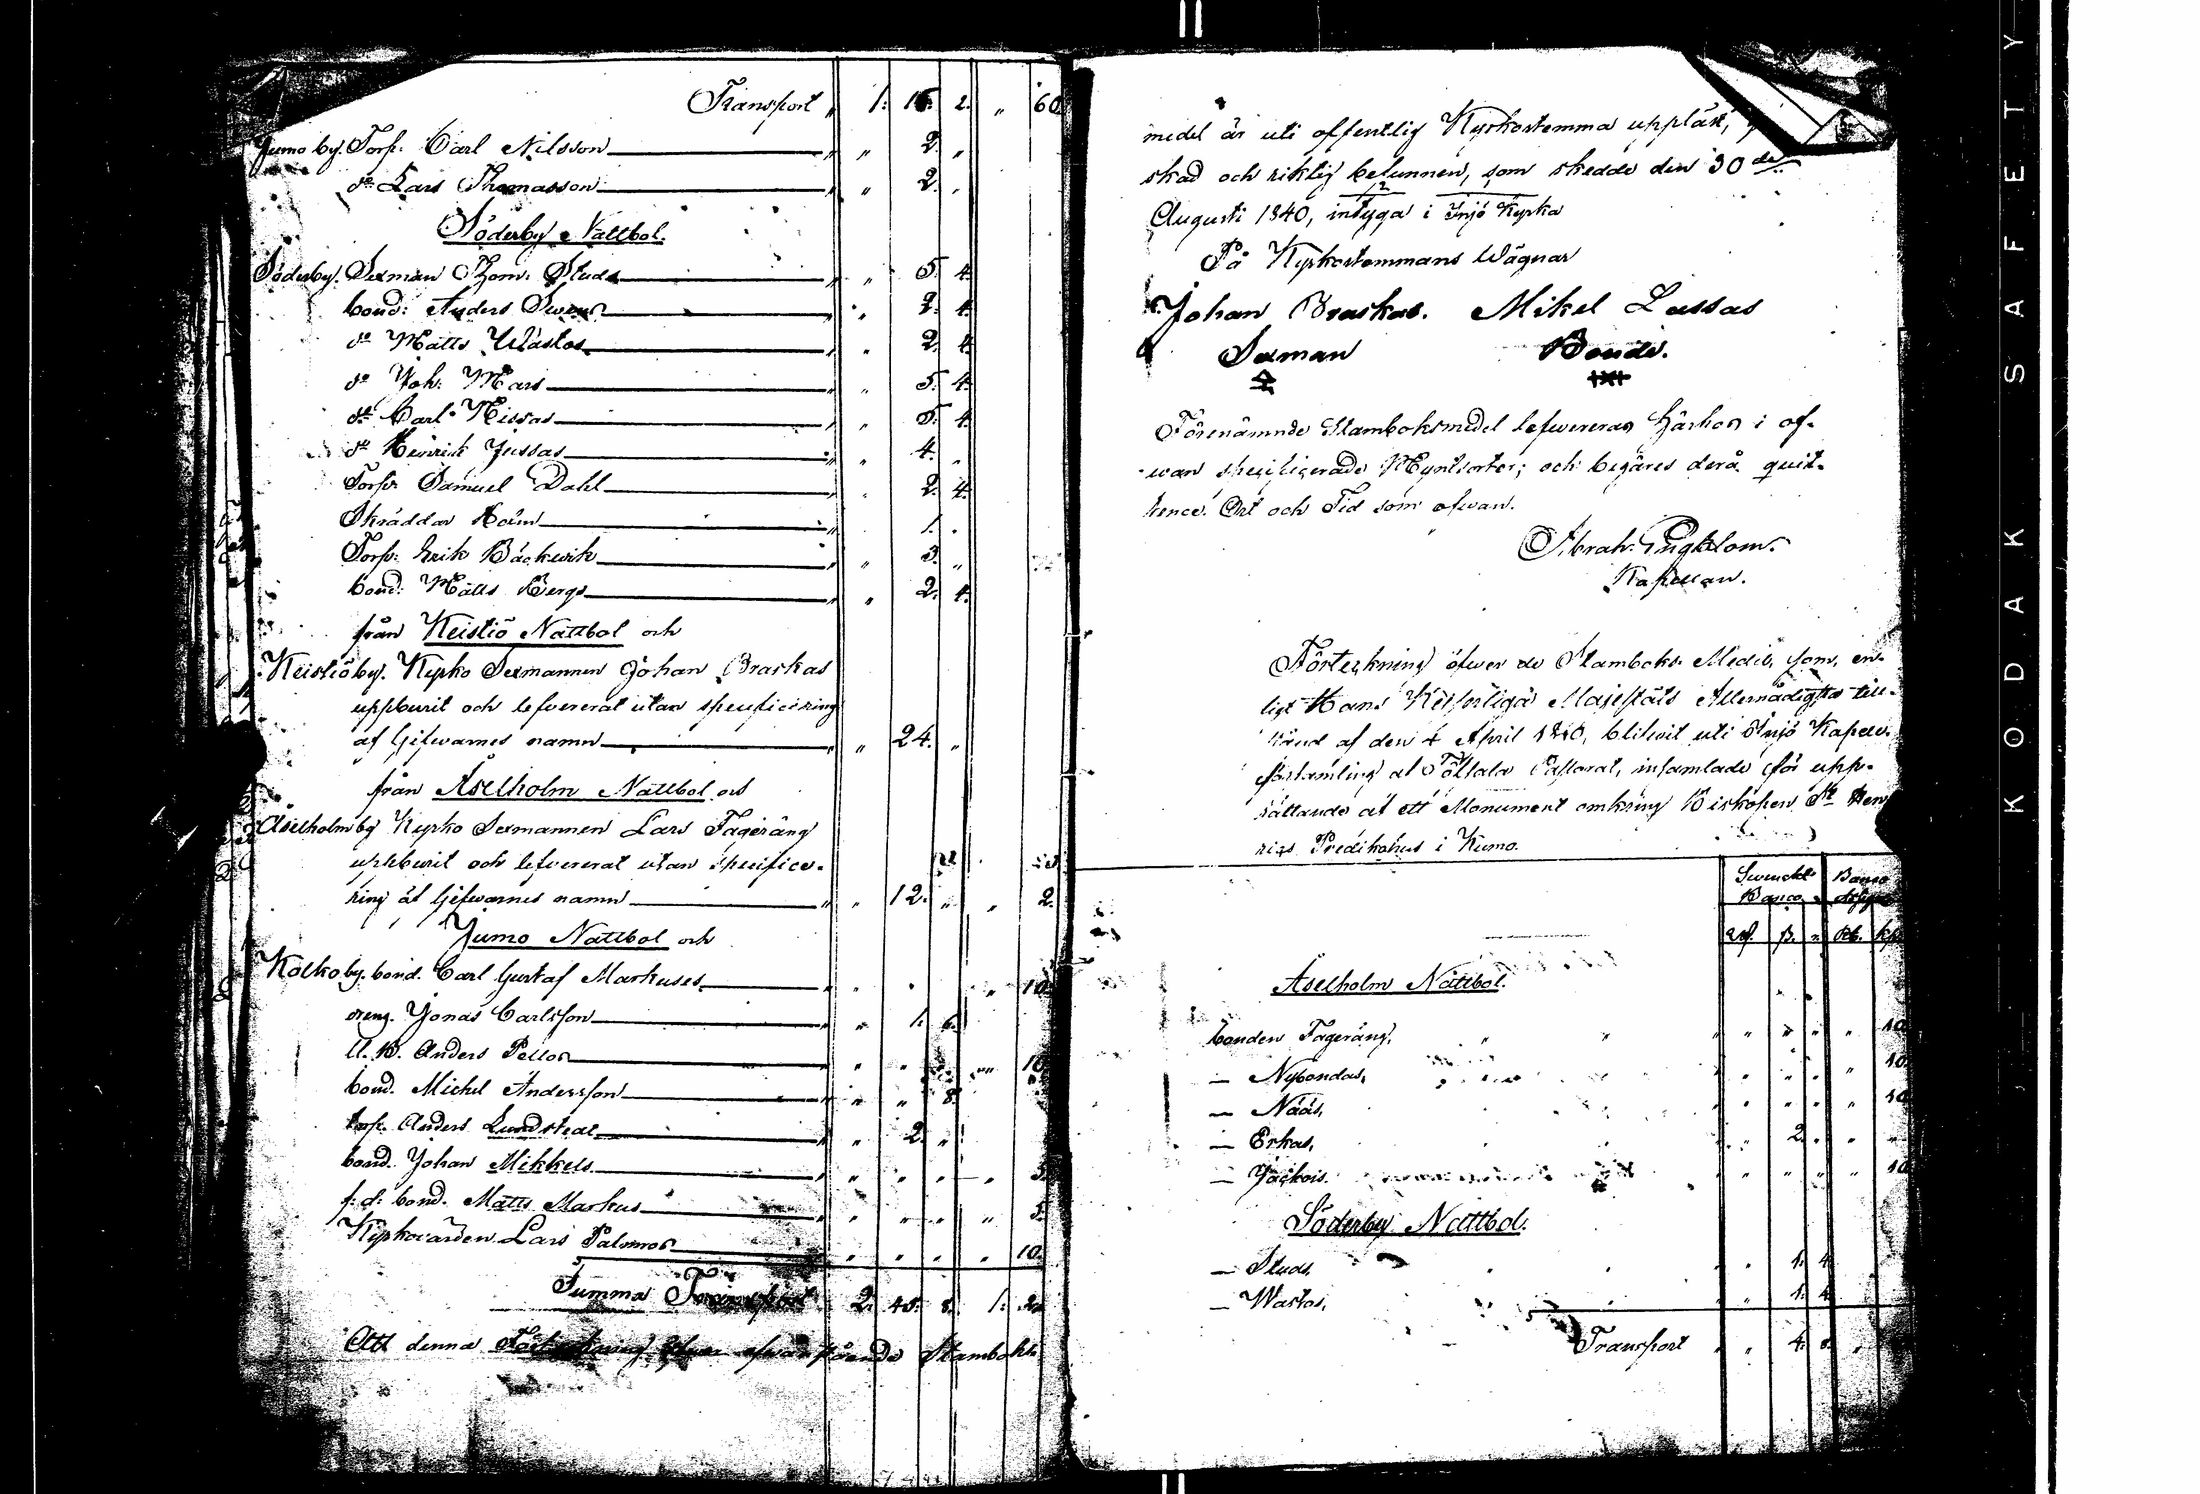 Transport " 1. 16. 2. " 60
Jumo by. Torp. Carl Nilsson " " 2. "
do Lars Thomasson " " 2. "
Söderby Nattbol.
Söderby. Sexman Thom. Studs " " 5. 4.
bond: Anders Svens " " 2. 4.
do Matts Wästas " " 2. 4.
do Joh: Mars " " 5. 4.
do Carl Nissas " " 5. 4.
do Henrik Jussas " " 4. "
Torp. Samuel Dahl " " 2. 4.
Skräddar Holm " " 1. "
Torp: Erik Bäckwik " " 3. "
bond: Matts Bergs " " 2. 4.
från Keistiö Nattbol och
Keistiö by. Kyrko Sexmannen Johan Braskas
uppburit och lefvererat utan specificering
af Gifwarnes namn " " 24. "
från Åselholm Nattbol och
Åselholm by Kyrko Sexmannen Lars Fageräng
uppburit och lefvererat utan specifice-
ring af Gifwarnes namn " " 12. " " 2.
Jumo Nattbol och
Kolko by. bond. Carl Gustaf Markuses " " " " 10.
dreng. Jonas Carlsson " " 1. 6.
Anders Pellos " " " " 10
bond. Michel Andersson " " " 8.
torp. Anders Lundstedt " " 2. "
bond. Johan Mikkels " " " " " 5.
f: d: bond. Matts Markus " " " " " 5.
Kyrkovärden Lars Palmros " " " " " 10.
Summa 2. 45. 8. 1. 2.
Att denna Förteckning öfver ofvanstående Stamboks
medel är uti offentlig Kyrkostemma uppläst,
skad och riktig befunnen, som skedde den 30de
Augusti 1840, intyga i Injö Kyrka
På Kyrkostemmans Wägnar
Johan Braskas. Mikel Lassas
Sexman Bonde.
Förenämnde Stamboksmedel lefvereras härhos i of-
wan specificerade Myntsorter; och begäres derå quit-
tence. Ort och Tid som ofwan.
Abrah: Engblom.
Kapellan.
Förteckning öfwer de Stamboks Medel, som, en-
ligt Hans Kejserliga Majestäts Allernådigste till-
stånd af den 4 April 1840, blifwit uti Injö Kapell
församling af Töfsala Pastorat, insamlade för upp-
rättande af ett Monument omkring Biskopen St Hen
rics Predikohus i Kumo.
Swenskt Banco Banco Assign
rdr. sk. " Rb. kp.
Åselholm Nattbol.
bonden Fageräng, " " " " " " 10
— Nybondas, " " " " 10
— Nääs, " " " " 10
— Erkas, " 2. " " "
— Jäckois. " " " " 10
Söderby Nattbol.
— Studs, " 1. 4
— Wastas, " 1. 4
Transport " 4. 8.
KODAK SAFETY